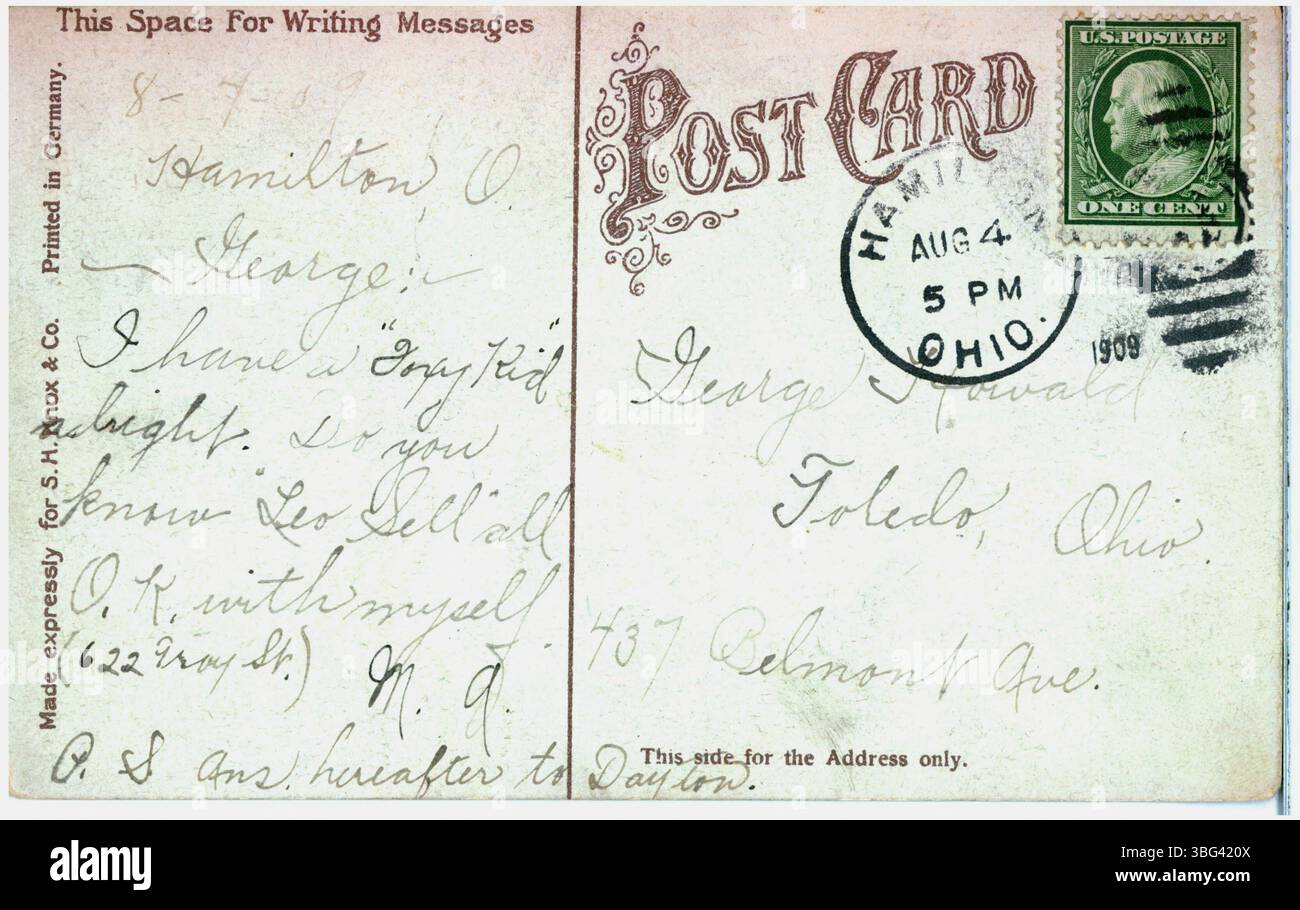 This Space For Writing Messages
8-7-09
Hamilton, O.
George:
I have a "Foxy Kid"
alright. Do you
know "Leo Sell" all
O.K. with myself
(622 Troy St.)
M. A.
P. S. Ans. hereafter to Dayton.
Made expressly for S. H. Knox & Co. Printed in Germany.
POST CARD
U.S. POSTAGE
ONE CENT
HAMILTON
AUG 4
5 PM
OHIO.
1909
George Howald
Toledo, Ohio.
437 Belmont Ave.
This side for the Address only.
alamy
Image ID: 3BG420X
www.alamy.com